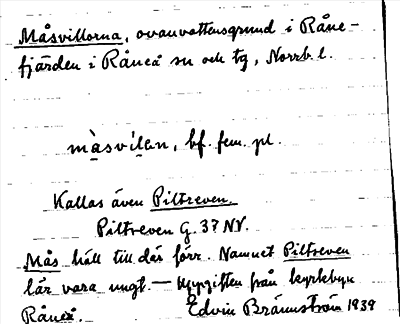 Måsvillorna, ovanvattensgrund i Råne-
fjärden i Råneå sn och tg, Norrb. l.
màsvilan, bf. fem. pl.
Kallas även Piltreven.
Piltreven G. 37 NV.
Mås håll till där förr. Namnet Piltreven
lär vara ungt. — Uppgiften från kyrkbyn
Råneå. Edvin Brännström 1939